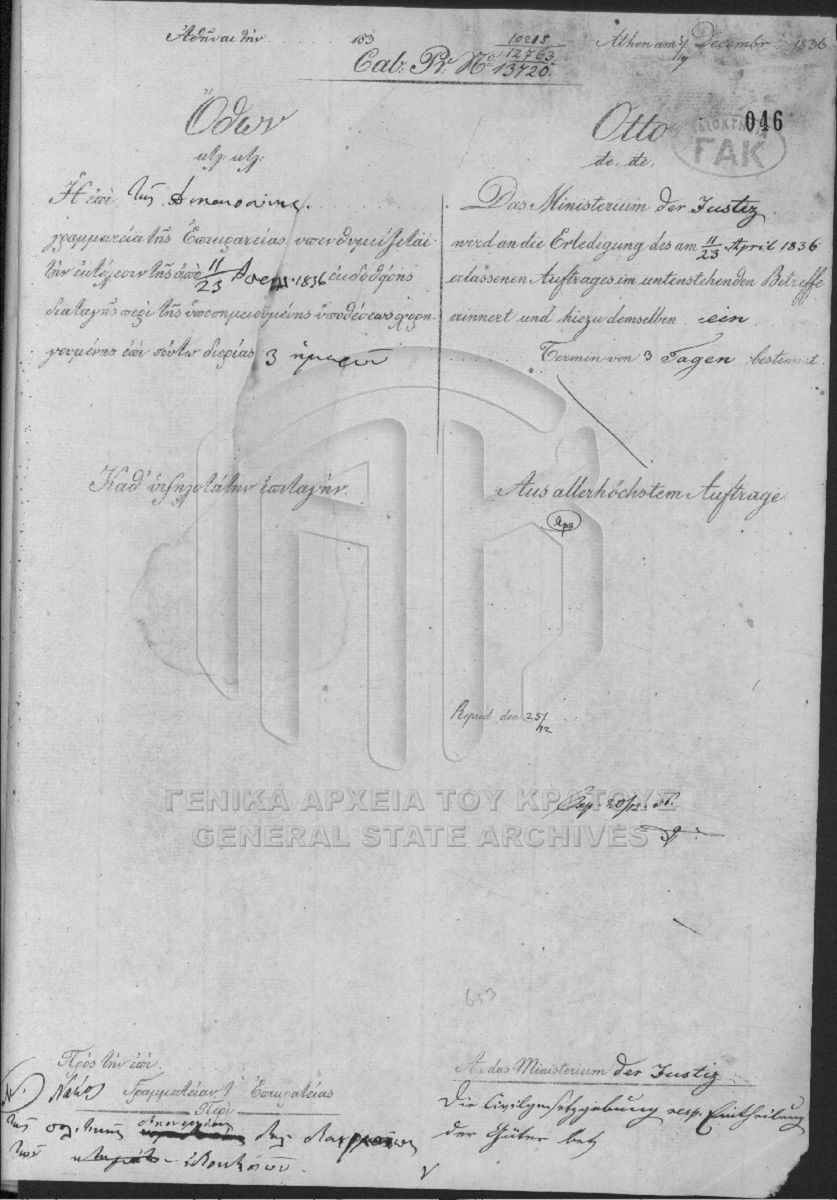 Ἀθῆναι τὴν 183
10215
12763
Cab. Pr. No. 13720.
Athen am Decembr 1836
046
ΓΑΚ
Ὄθων
κτλ. κτλ.
Ἡ ἐπὶ τῆς Δικαιοσύνης
γραμματεία τῆς Ἐπικρατείας ὑπενθυμίζεται
τὴν ἐκτέλεσιν τῆς ἀπὸ 11/23 1836 ἐκδοθείσης
διαταγῆς περὶ τῆς ὑποσημειουμένης ὑποθέσεως χορη-
γουμένης ἐπὶ τούτῳ διορίας 3 ἡμερῶν
Καθ' ὑψηλοτάτην ἐπιταγήν.
Otto
etc. etc.
Das Ministerium der Justiz
wird an die Erledigung des am 11/23 April 1836
erlassenen Auftrages im untenstehenden Betreffe
erinnert und hiezu demselben ein
Termin von 3 Tagen bestimmt.
Aus allerhöchstem Auftrage
den 25/12
Exp. 20/12 36.
ΓΕΝΙΚΑ ΑΡΧΕΙΑ ΤΟΥ ΚΡΑΤΟΥΣ
GENERAL STATE ARCHIVES
633
Πρὸς τὴν ἐπὶ
Γραμματείαν τ. Ἐπικρατείας
Περὶ
τῆς πολιτικῆς
τῶν
An das Ministerium der Justiz
Die Civilgesetzgebung resp. Eintheilung
der Güter betr.